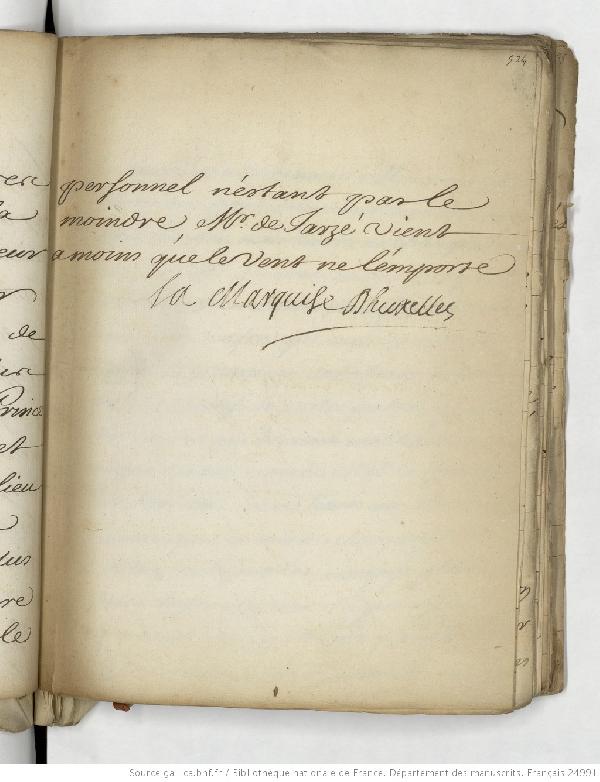 524
personnel n'estant pas le
moindre Mr. de Jarzé vient
a moins que le vent ne l'emporte
la Marquise Dhuxelles
de
Prince
et
lieu
le
Source gallica.bnf.fr / Bibliothèque nationale de France. Département des manuscrits. Français 24991